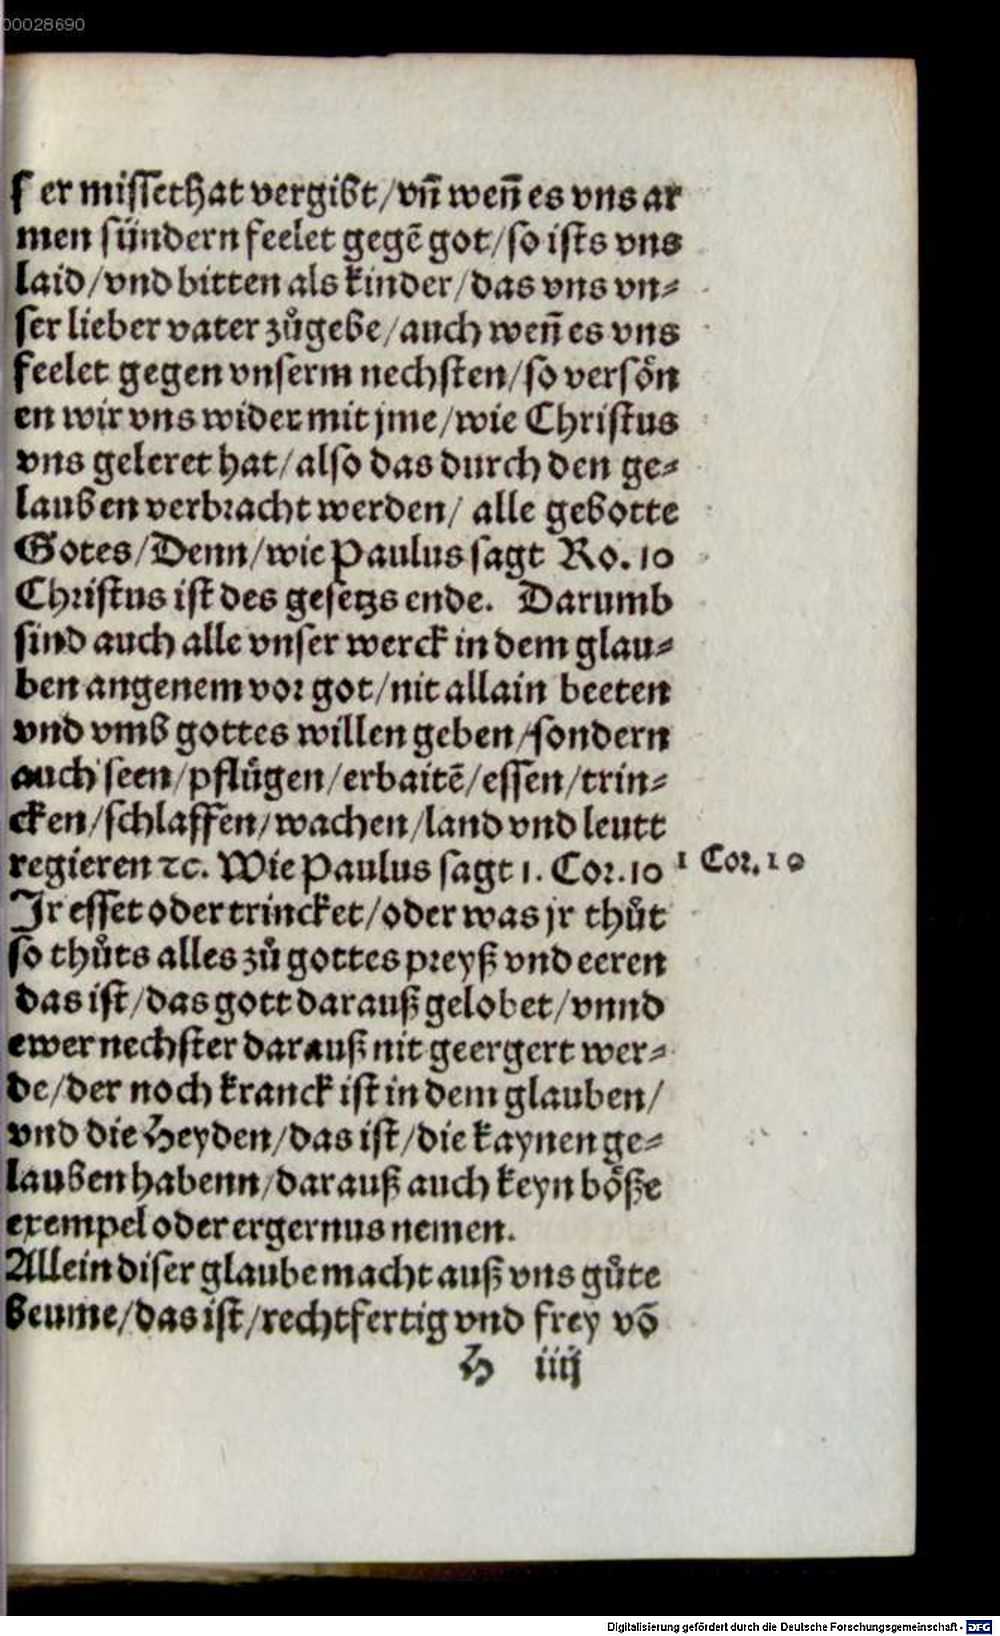 00028690
ſer miſſethat vergibt/vn̄ wen̄ es vns ar
men ſündern feelet gegē got/ſo iſts vns
laid/vnd bitten als kinder/das vns vn⸗
ſer lieber vater zůgebe/auch wen̄ es vns
feelet gegen vnſerm nechſten/ſo verſoͤn
en wir vns wider mit jme/wie Chriſtus
vns geleret hat/alſo das durch den ge⸗
lauben verbꝛacht werden/ alle gebotte
Gotes/Denn/wie Paulus ſagt Ro. 10
Chꝛiſtus iſt des geſetzs ende. Darumb
ſind auch alle vnſer werck in dem glau⸗
ben angenem voꝛ got/nit allain beeten
vnd vmb gottes willen geben/ſondern
auch seen/pflügen/erbaitē/eſſen/trin⸗
cken/ſchlaffen/wachen/land vnd leutt
regieren ꝛc. Wie Paulus ſagt 1. Coꝛ. 10
1 Coꝛ. 10
Jr eſſet oder trincket/oder was jr thůt
ſo thůts alles zů gottes pꝛeyß vnd eeren
das iſt/das gott darauß gelobet/vnnd
ewer nechſter darauß nit geergert wer⸗
de/der noch kranck iſt in dem glauben/
vnd die Heyden/das iſt/die kaynen ge⸗
lauben habenn/darauß auch keyn boͤße
exempel oder ergernus nemen.
Allein diſer glaube macht auß vns gůte
beume/das iſt/rechtfertig vnd frey vō
H iiij
Digitalisierung gefördert durch die Deutsche Forschungsgemeinschaft - DFG